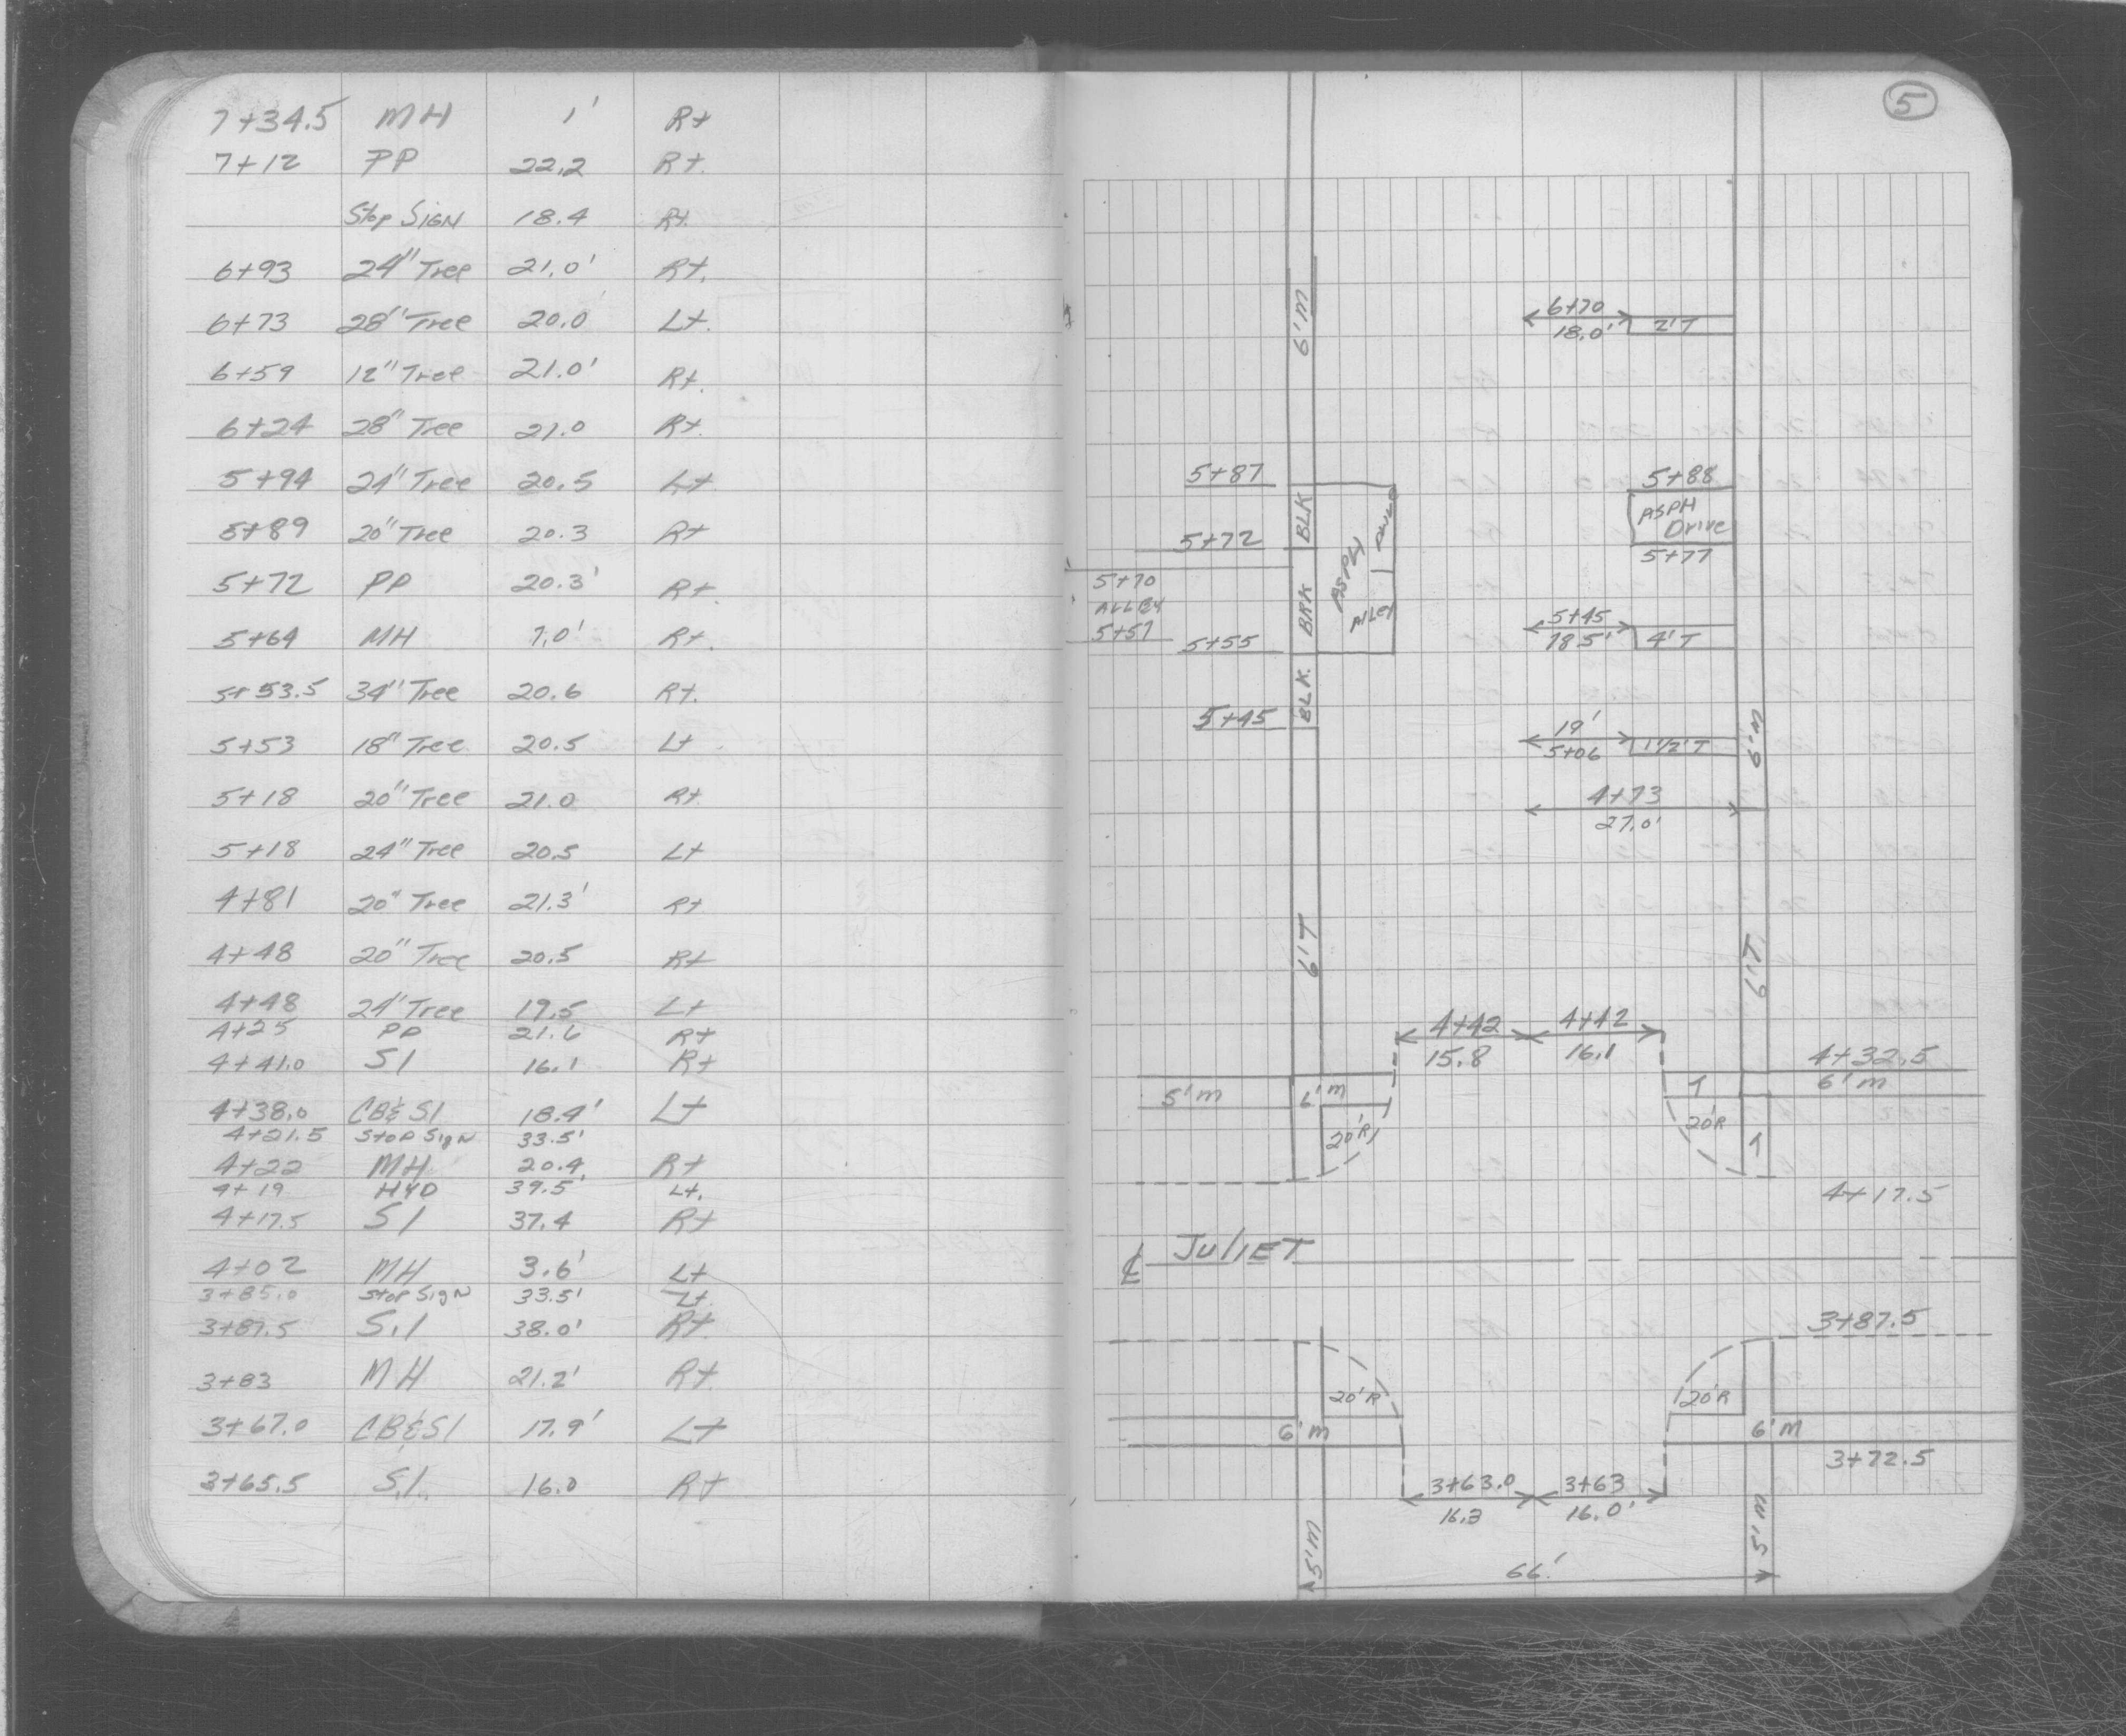 7+34.5 MH 1' Rt
7+12 PP 22.2 Rt.
Stop SIGN 18.4 Rt.
6+93 24" Tree 21.0' Rt.
6+73 28" Tree 20.0 Lt.
6+59 12" Tree 21.0' Rt.
6+24 28" Tree 21.0 Rt.
5+94 24" Tree 20.5 Lt
5+89 20" Tree 20.3 Rt
5+72 PP 20.3' Rt.
5+64 MH 7.0' Rt.
5+53.5 34" Tree 20.6 Rt.
5+53 18" Tree 20.5 Lt
5+18 20" Tree 21.0 Rt
5+18 24" Tree 20.5 Lt
4+81 20" Tree 21.3' Rt
4+48 20" Tree 20.5 Rt
4+48 24' Tree 19.5 Lt
4+25 PP 21.6 Rt
4+41.0 SI 16.1 Rt
4+38.0 CB & SI 18.4' Lt
4+21.5 Stop Sign 33.5'
4+22 MH 20.4 Rt
4+19 HYD 39.5' Lt.
4+17.5 SI 37.4 Rt
4+02 MH 3.6' Lt
3+85.0 Stop Sign 33.5' Lt.
3+87.5 S.I 38.0' Rt
3+83 MH 21.2' Rt
3+67.0 CB & SI 17.9' Lt
3+65.5 S.I. 16.0 Rt
5
6'M
6+70
18.0' 2'T
5+87
5+88
BLK
ASPH
Drive
5+72
5+77
5+70
ALLEY
5+57
BRK
ASPH
Alley
5+45
18.5' 4'T
5+55
BLK.
5+45
19'
5+06 1 1/2'T
6'M
4+73
27.0'
6'T
6'T
4+42 4+42
15.8 16.1
4+32.5
5'm 6'm T 6'm
20'R 20'R T
4+17.5
℄ JULIET
3+87.5
20'R 20'R
6'M 6'M
3+72.5
3+63.0 3+63
16.3 16.0'
5'M 5'M
66'